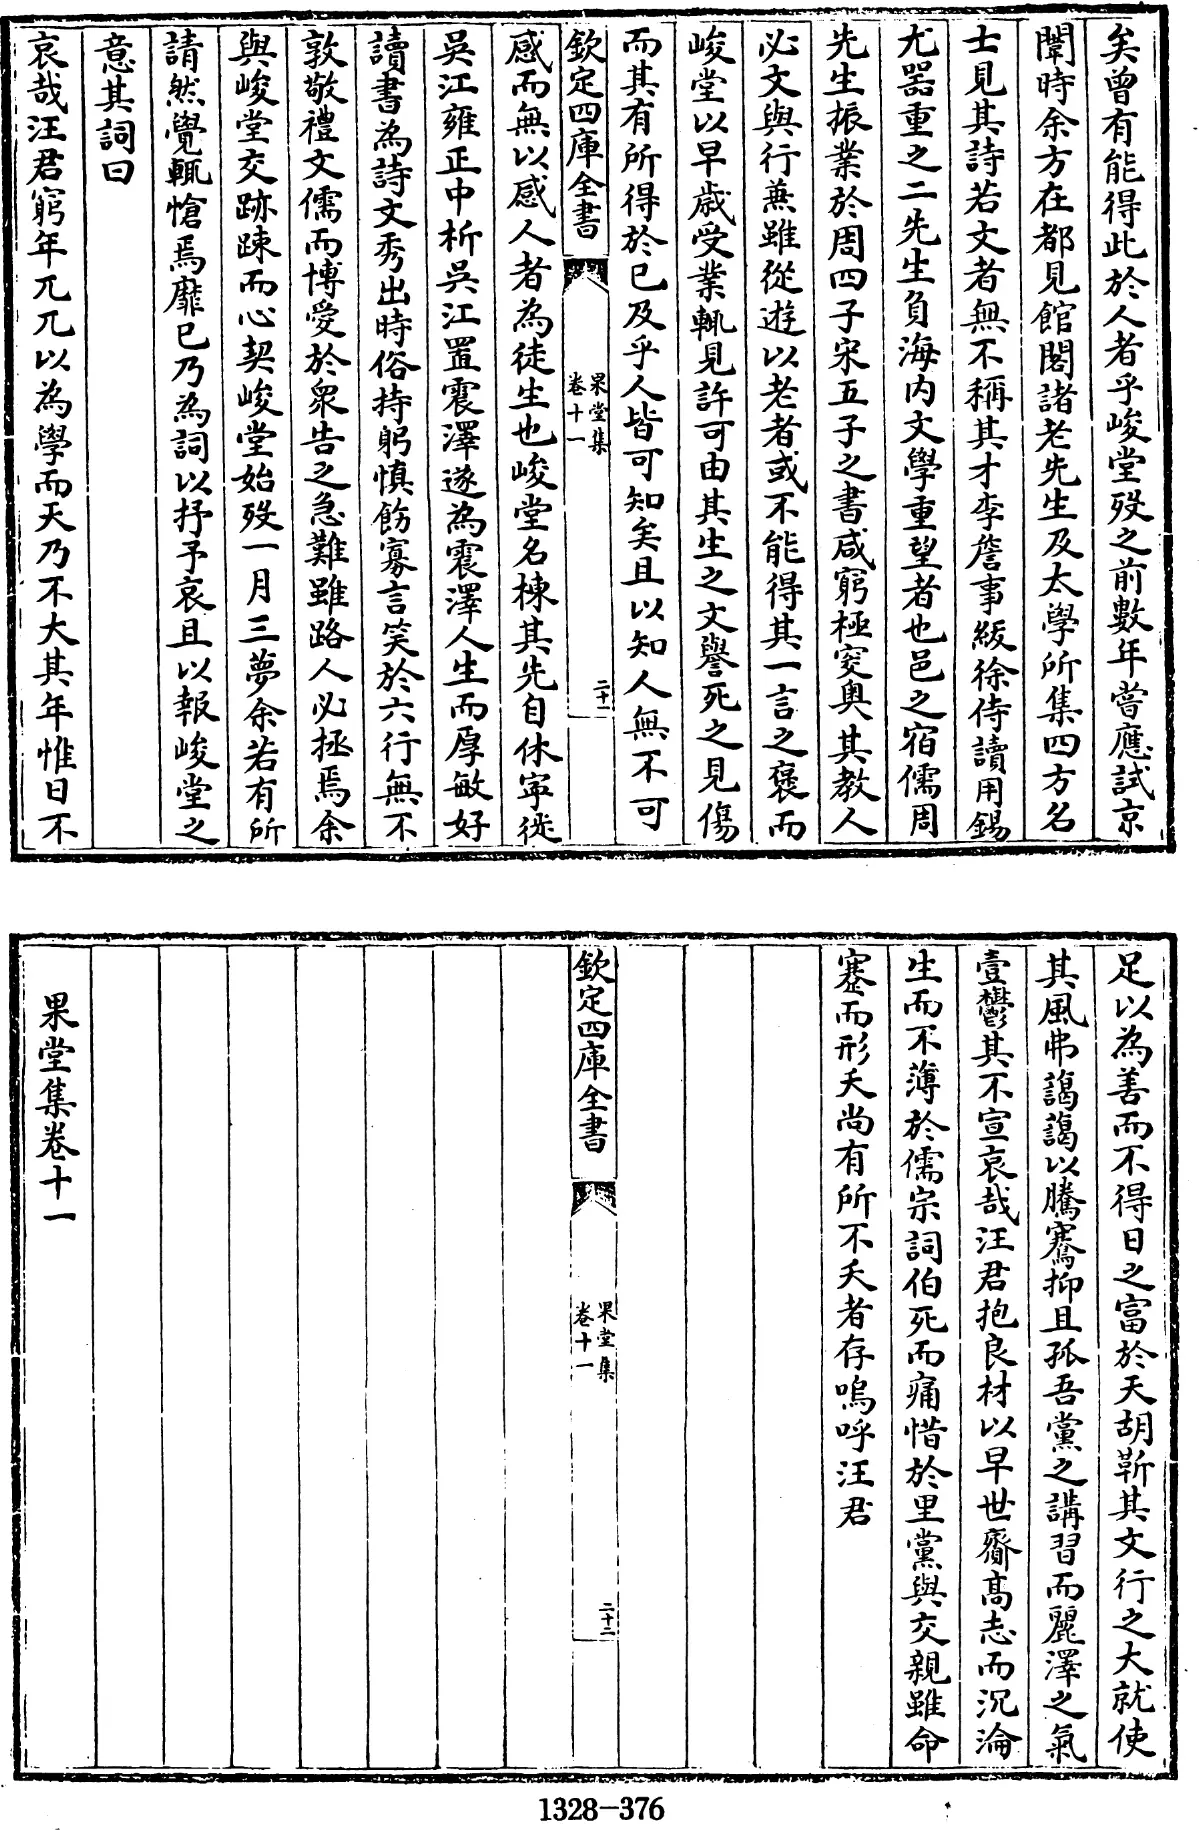 矣曾有能得此於人者乎峻堂歿之前數年嘗應試京
闈時余方在都見館閣諸老先生及太學所集四方名
士見其詩若文者無不稱其才李詹事紱徐侍讀用錫
尤器重之二先生負海内文學重望者也邑之宿儒周
先生振業於周四子宋五子之書咸窮極窔奥其教人
必文與行兼雖從遊以老者或不能得其一言之褒而
峻堂以早歳受業輒見許可由其生之文譽死之見傷
而其有所得於已及乎人皆可知矣且以知人無不可
欽定四庫全書
果堂集
卷十一
二十一
感而無以感人者為徒生也峻堂名棟其先自休寧徙
吳江雍正中析吳江置震澤遂為震澤人生而厚敏好
讀書為詩文秀出時俗持躬慎飭寡言笑於六行無不
敦敬禮文儒而博愛於衆告之急難雖路人必拯焉余
與峻堂交跡踈而心契峻堂始歿一月三夢余若有所
請然覺輒愴焉靡已乃為詞以抒予哀且以報峻堂之
意其詞曰
哀哉汪君窮年兀兀以為學而天乃不大其年惟日不
足以為善而不得日之富於天胡靳其文行之大就使
其風弗藹藹以騰騫抑且孤吾黨之講習而麗澤之氣
壹鬱其不宣哀哉汪君抱良材以早世齎高志而沉淪
生而不薄於儒宗詞伯死而痛惜於里黨與交親雖命
蹇而形夭尚有所不夭者存嗚呼汪君
欽定四庫全書
果堂集
卷十一
二十二
果堂集卷十一
1328-376